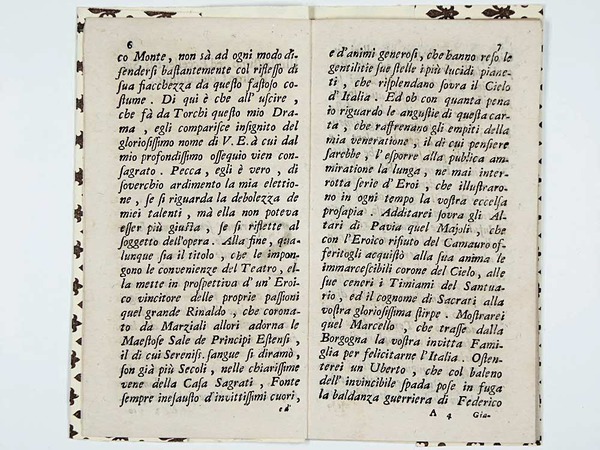 6
co Monte, non sà ad ogni modo di-
fendersi bastantemente col riflesso di
sua fiacchezza da questo fastoso co-
stume. Di quì è che all' uscire,
che fà da Torchi questo mio Dra-
ma, egli comparisce insignito del
gloriosissimo nome di V. E. à cui dal
mio profondissimo ossequio vien con-
sagrato. Pecca, egli è vero, di
soverchio ardimento la mia elettio-
ne, se si riguarda la debolezza de
miei talenti, mà ella non poteva
esser più giusta, se si riflette al
soggetto dell'opera. Alla fine, qua-
lunque sia il titolo, che le impon-
gono le convenienze del Teatro, el-
la mette in prospettiva d' un' Eroi-
co vincitore delle proprie passioni
quel grande Rinaldo, che corona-
to da Marziali allori adorna le
Maestose Sale de Principi Estensi,
il di cui Sereniss. sangue si diramò,
son già più Secoli, nelle chiarissime
vene della Casa Sagrati, Fonte
sempre inesausto d'invittissimi cuori,
ed
7
e d'animi generosi, che hanno reso le
gentilitie sue stelle i più lucidi piane-
ti, che risplendano sovra il Cielo
d' Italia. Ed ob con quanta pena
io riguardo le angustie di questa car-
ta, che raffrenano gli empiti della
mia veneratione, il di cui pensiere
sarebbe, l'esporre alla publica am-
miratione la lunga, ne mai inter-
rotta serie d' Eroi, che illustraro-
no in ogni tempo la vostra eccelsa
prosapia. Additarei sovra gli Al-
tari di Pavia quel Majoli, che
con l'Eroico rifiuto del Camauro of-
feritogli acquistò alla sua anima le
immarcescibili corone del Cielo, alle
sue ceneri i Timiami del Santua-
rio, ed il cognome di Sacrati alla
vostra gloriosissima stirpe. Mostrarei
quel Marcello, che trasse dalla
Borgogna la vostra invitta Fami-
glia per felicitarne l'Italia. Osten-
terei un Uberto, che col baleno
dell' invincibile spada pose in fuga
la baldanza guerriera di Federico
A 4 Gia-